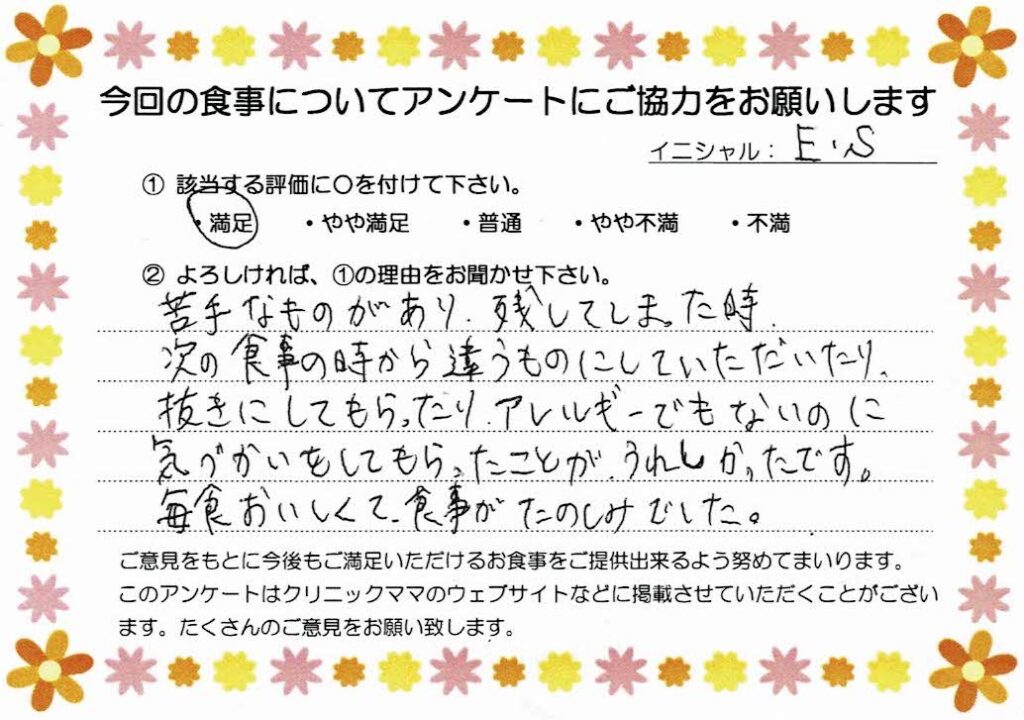 今回の食事についてアンケートにご協力をお願いします
イニシャル： E.S
① 該当する評価に〇を付けて下さい。
・満足 ・やや満足 ・普通 ・やや不満 ・不満
② よろしければ、①の理由をお聞かせ下さい。
苦手なものがあり、残してしまった時、
次の食事の時から違うものにしていただいたり、
抜きにしてもらったり、アレルギーでもないのに
気づかいをしてもらったことが、うれしかったです。
毎食おいしくて、食事がたのしみでした。
ご意見をもとに今後もご満足いただけるお食事をご提供出来るよう努めてまいります。
このアンケートはクリニックママのウェブサイトなどに掲載させていただくことがござい
ます。たくさんのご意見をお願い致します。